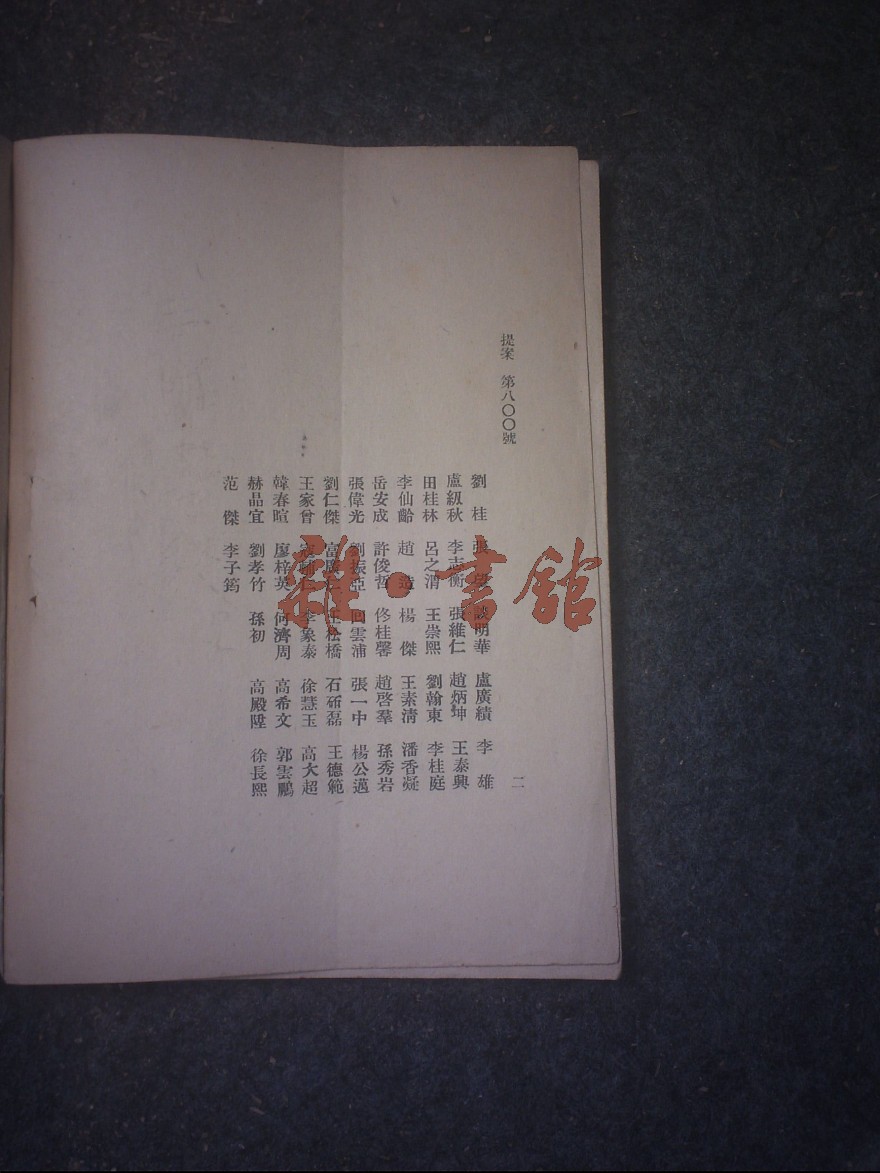 提案 第八〇〇號
二
劉桂 張 談明華 盧廣績 李雄
盧紐秋 李志衡 張維仁 趙炳坤 王泰興
田桂林 呂之渭 王崇熙 劉翰東 李桂庭
李仙齡 趙造 楊傑 王素清 潘香凝
岳安成 許俊哲 佟桂馨 趙啓羣 孫秀岩
張偉光 劉振亞 回雲浦 張一中 楊公邁
劉仁傑 富 王松橋 石硏磊 王德範
王家曾 李象泰 徐慧玉 高大超
韓春暄 廖梓英 何濟周 高希文 郭雲鵬
赫品宜 劉孝竹 孫初 高殿陞 徐長熙
范傑 李子筠
雜·書館